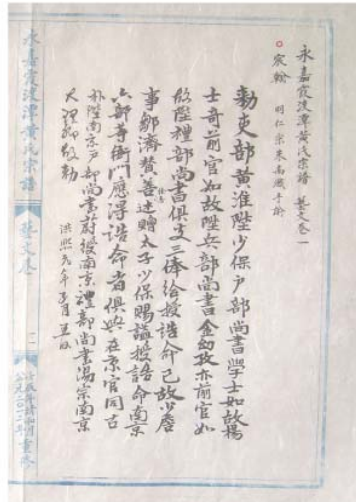 永嘉霞渡潭黄氏宗譜 藝文卷一
宸翰 明仁宗朱高熾手諭
勅吏部黄淮陞少保户部尚書學士如故楊
士奇前官如故陞兵部尚書金幼孜亦前官如
故陞禮部尚書俱支三俸給授誥命已故少詹
事鄒濟贊善述贈太子少保賜謚授誥命南京
六部等衙門應得誥命者俱與在京官同古
朴陞南京户部尚書蔚授南京禮部尚書湯宗南京
大理卿故勅
洪熙元年
永嘉霞渡潭黄氏宗譜
藝文卷
一
重修